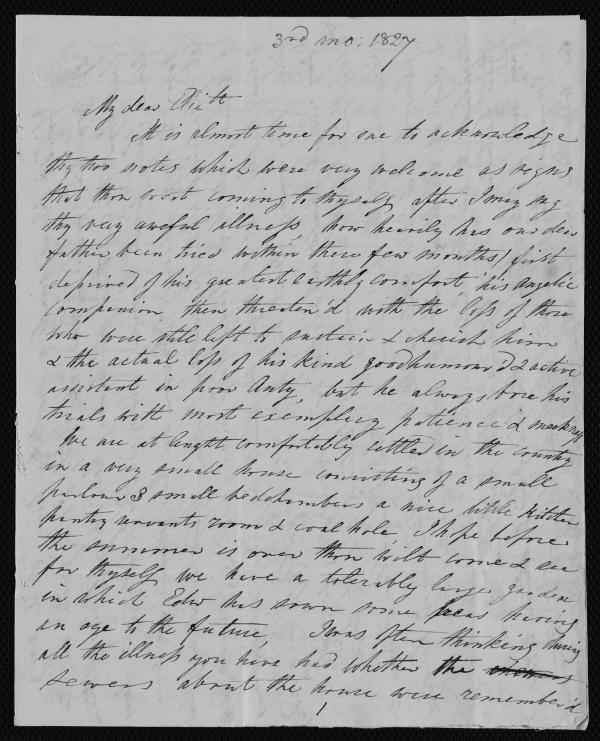 3rd mo: 1827
My dear Eliz.th
It is almost time for me to acknowledge
thy two notes which were very welcome as signs
that thou wast coming to thyself, after I may say
thy very aweful illness, how heavily has our dear
father been tried within these few months! first
deprived of his greatest earthly comfort, his angelic
companion, then threaten'd with the loss of those
who were still left to sustain & cherish him
& the actual loss of his kind goodhumour'd & active
assistant in poor Anty, but he always bore his
trials with most exemplary patience & meekness
We are at lenght comfortably settled in the country
in a very small house consisting of a small
parlour 3 small bedchambers a nice little kitchen
pantry servants room & coal hole, I hope before
the summer is over thou wilt come & see
for thyself, we have a tolerably large garden
in which Edw has sown some peas having
an eye to the future, I was often thinking during
all the illness you have had whether the
sewers about the house were remember'd
1